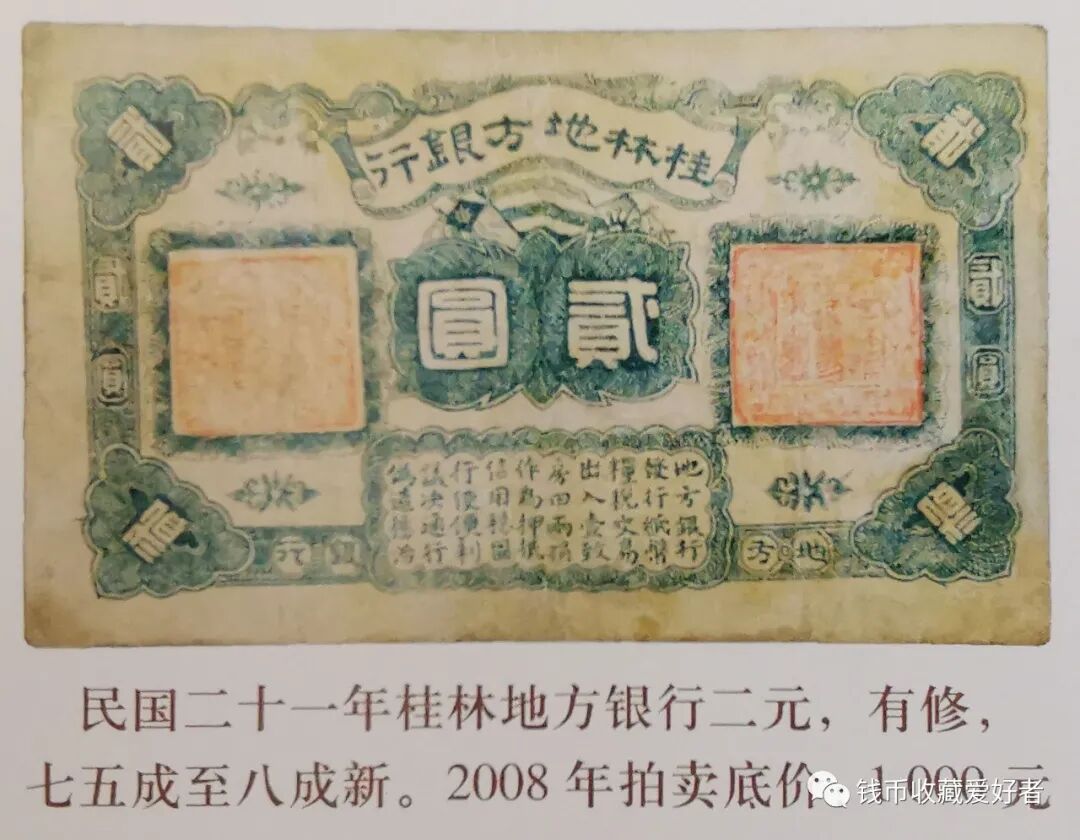 桂林地方銀行
貳圓
貳圓
貳圓
地方銀行
發行紙幣
糧稅交易
出入壹致
房田兩項
作為押抵
信用穩固
行使便利
議決通行
偽造懲治
地方
銀行
民国二十一年桂林地方银行二元，有修，
七五成至八成新。2008 年拍卖底价：1 000 元
钱币收藏爱好者